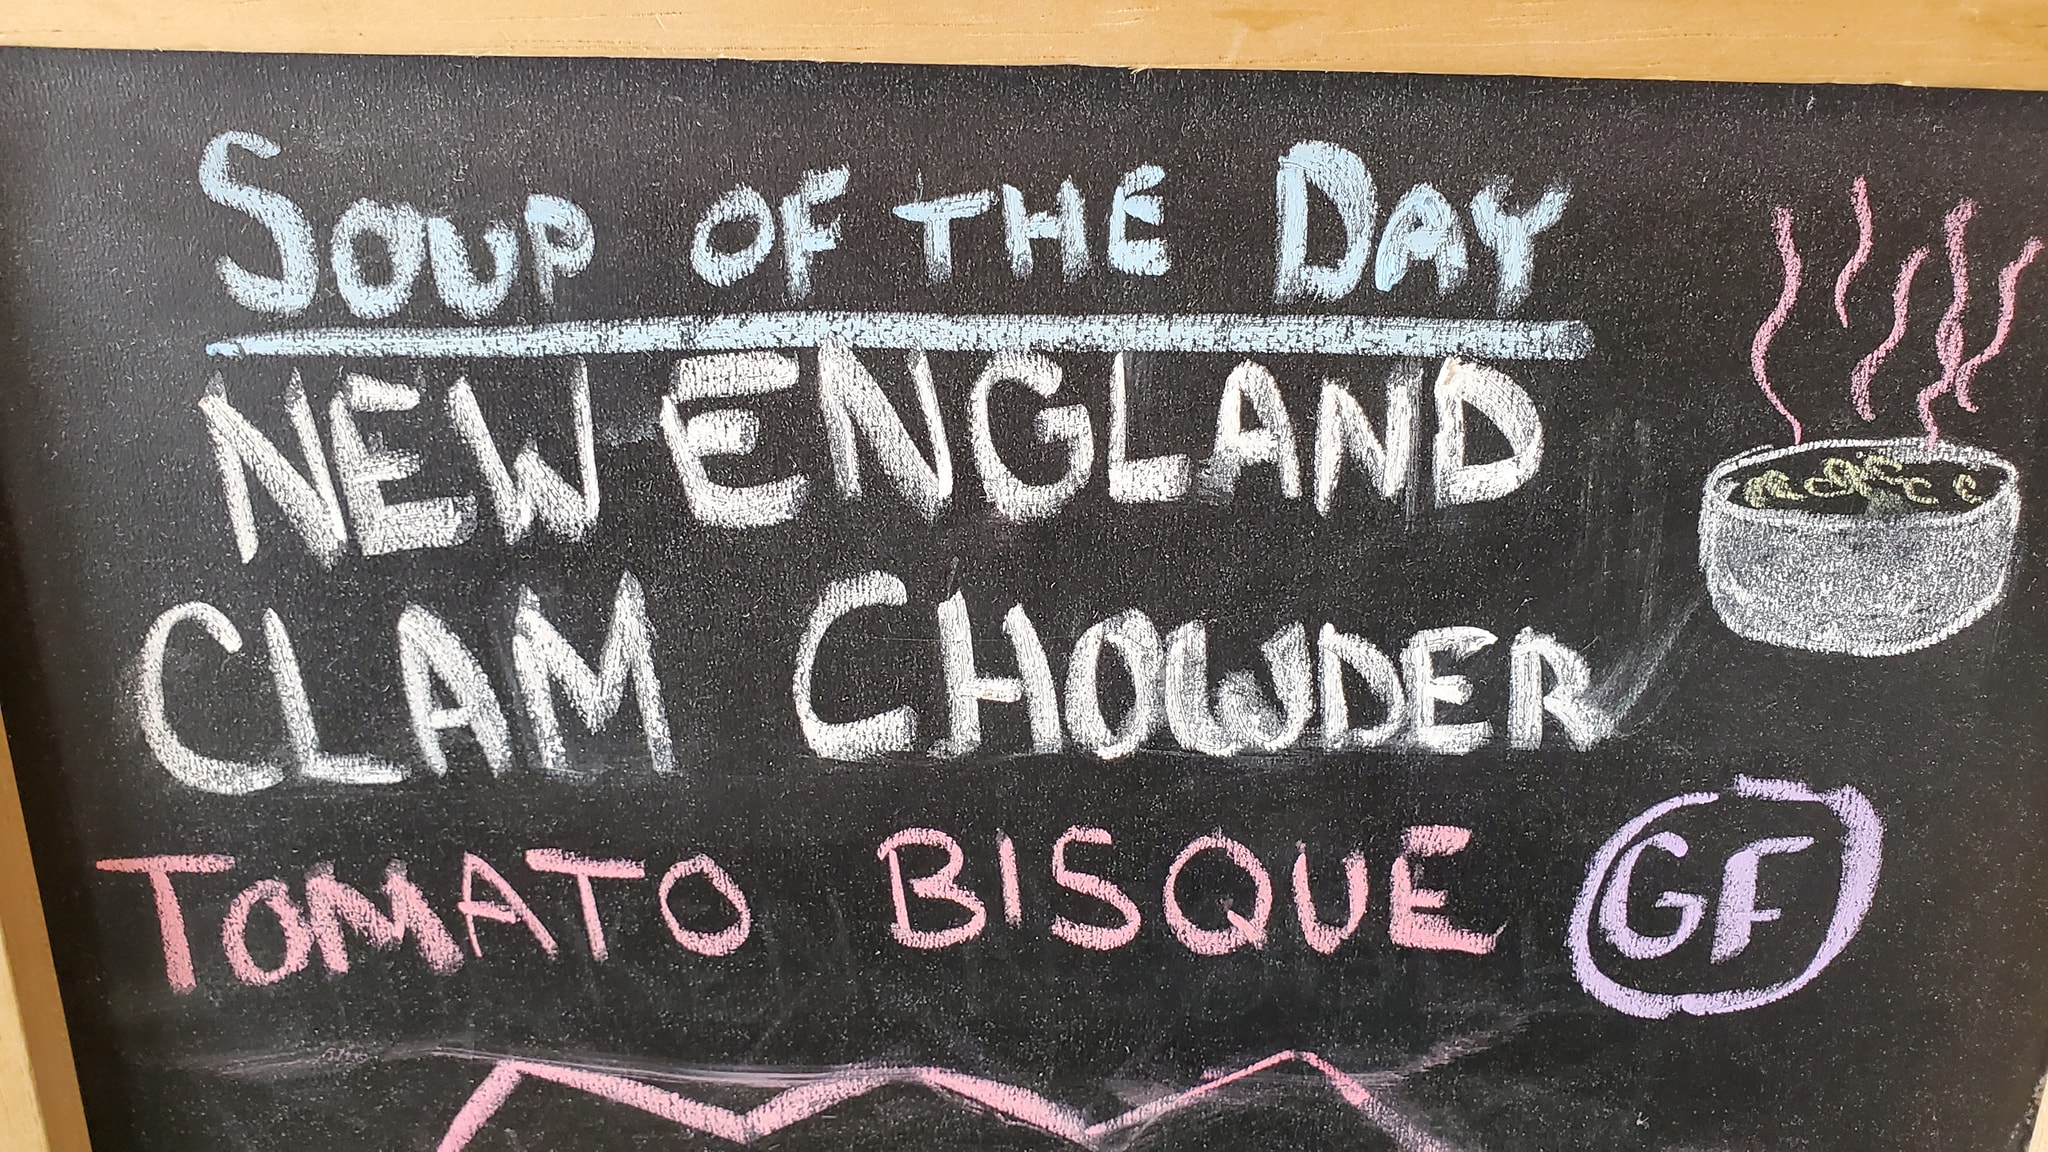 SOUP OF THE DAY
NEW ENGLAND
CLAM CHOWDER
TOMATO BISQUE GF